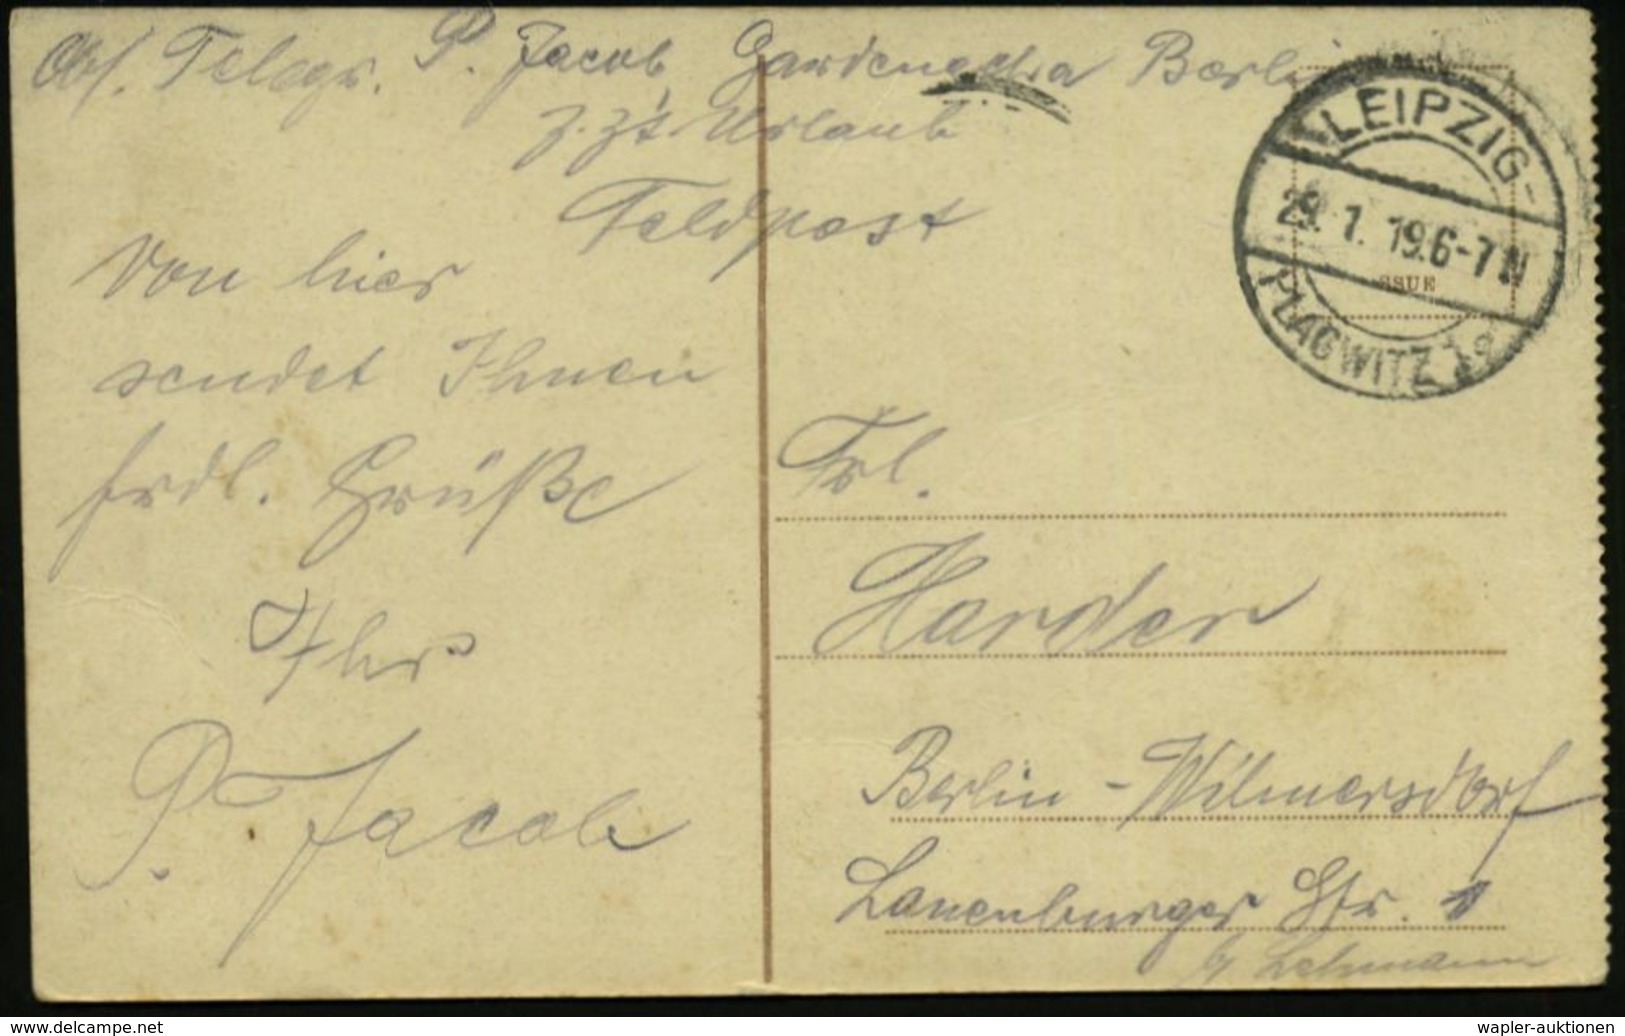 Abs. Telegr. P. Jacob, Berlin
z. Zt. Urlaub
Feldpost
Von hier
sendet Ihnen
frdl. Grüße
Ihr
P. Jacob
LEIPZIG-
29. 1. 19. 6-7 N
PLAGWITZ 1
SSUE
Frl.
Harder
Berlin-Wilmersdorf
Lauenburger Str.
b/ Lehmann
www.delcampe.net
wapler-auktionen